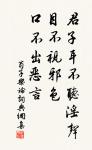 君子耳不聽淫聲
目不視邪色
口不出惡言
荀子樂論詞典網集